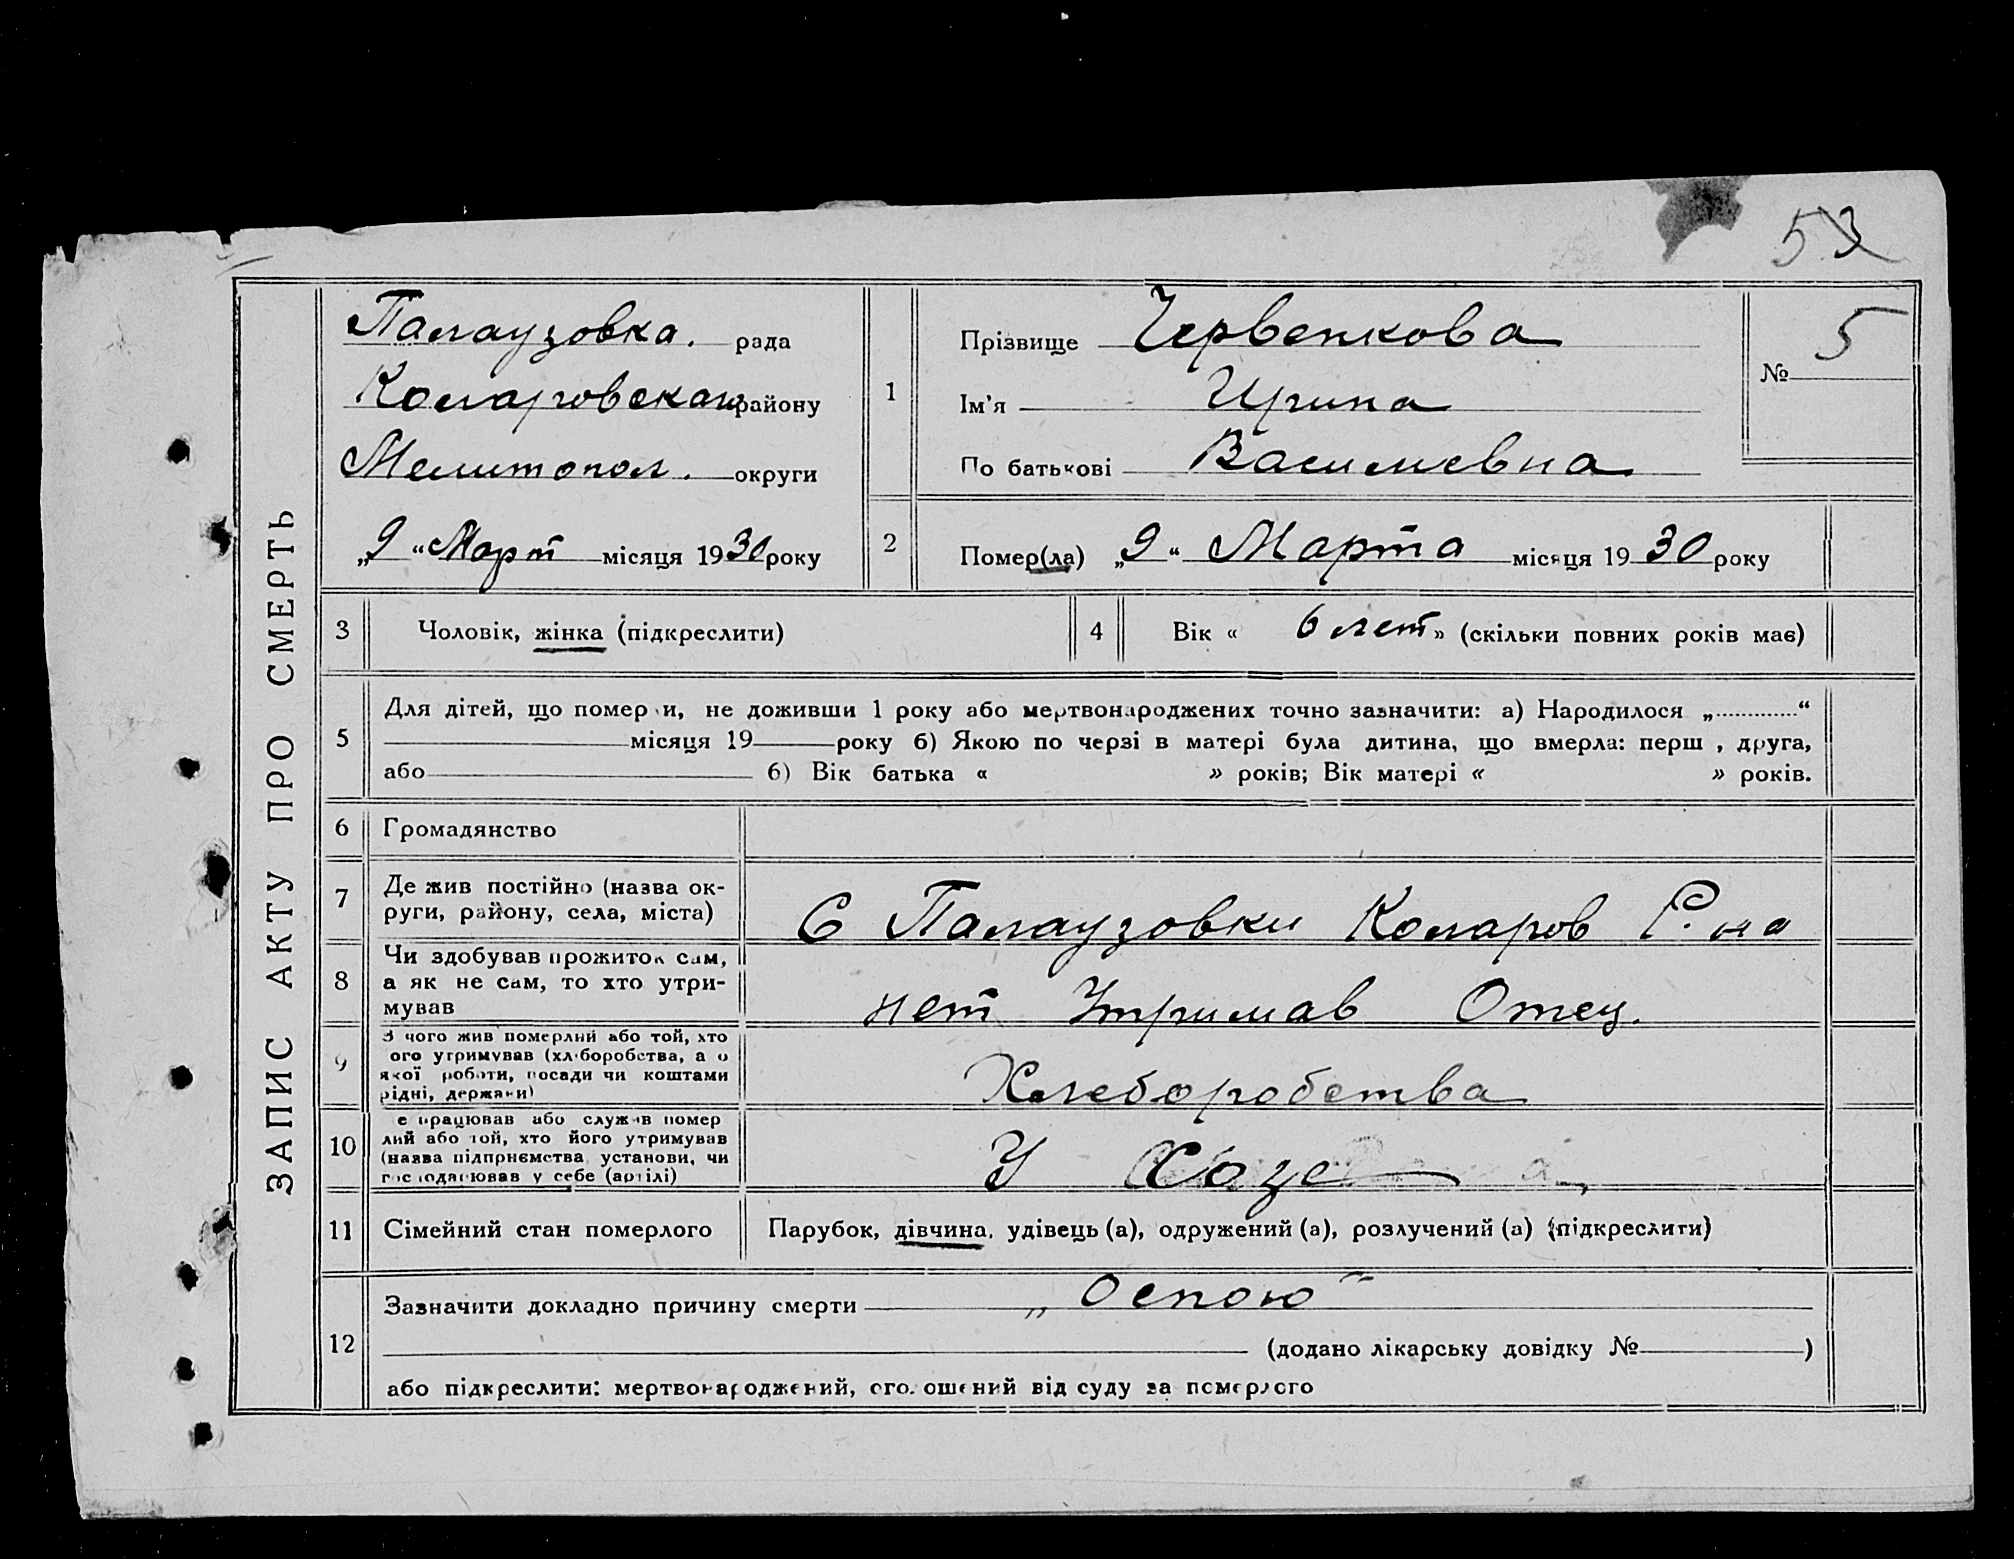 53
ЗАПИС АКТУ ПРО СМЕРТЬ
Палаузовка. рада
Коларовскаго району
Мелитопол. округи
„9“ Март місяця 1930 року
1
Прізвище Червенкова
Ім'я Ирина
По батькові Василевна
№ 5
2
Помер(ла) „9“ Марта місяця 1930 року
3 Чоловік, жінка (підкреслити)
4 Вік « 6 лет » (скільки повних років має)
5
Для дітей, що померли, не доживши 1 року або мертвонароджених точно зазначити: а) Народилося „.............“
місяця 19 року б) Якою по черзі в матері була дитина, що вмерла: перш , друга,
або б) Вік батька « » років; Вік матері « » років.
6 Громадянство
7
Де жив постійно (назва ок-
руги, району, села, міста)
С Палаузовки Коларов Р.на
8
Чи здобував прожиток сам,
а як не сам, то хто утри-
мував
нет Утримав Отец.
9
З чого жив померлий або той, хто
ого утримував (хліборобства, а о
якої роботи, посади чи коштами
рідні, держави)
Хлеборобства
10
е працював або служив помер
лий або той, хто його утримував
(назва підприємства, установи, чи
господарював у себе (артілі)
У
11 Сімейний стан померлого
Парубок, дівчина, удівець (а), одружений (а), розлучений (а) (підкреслити)
12
Зазначити докладно причину смерти „Оспою“
(додано лікарську довідку № )
або підкреслити: мертвонароджений, оголошений від суду за померлого